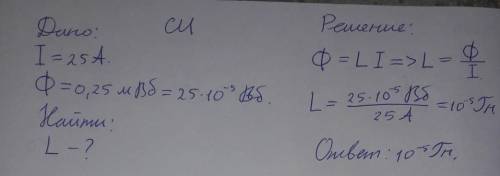 Дано: СИ
I = 25 А.
Ф = 0,25 мВб = 25·10⁻⁵ Вб.
Найти:
L - ?
Решение:
Ф = L I => L = Ф/I
L = 25·10⁻⁵ Вб / 25 А = 10⁻⁵ Гн
Ответ: 10⁻⁵ Гн.